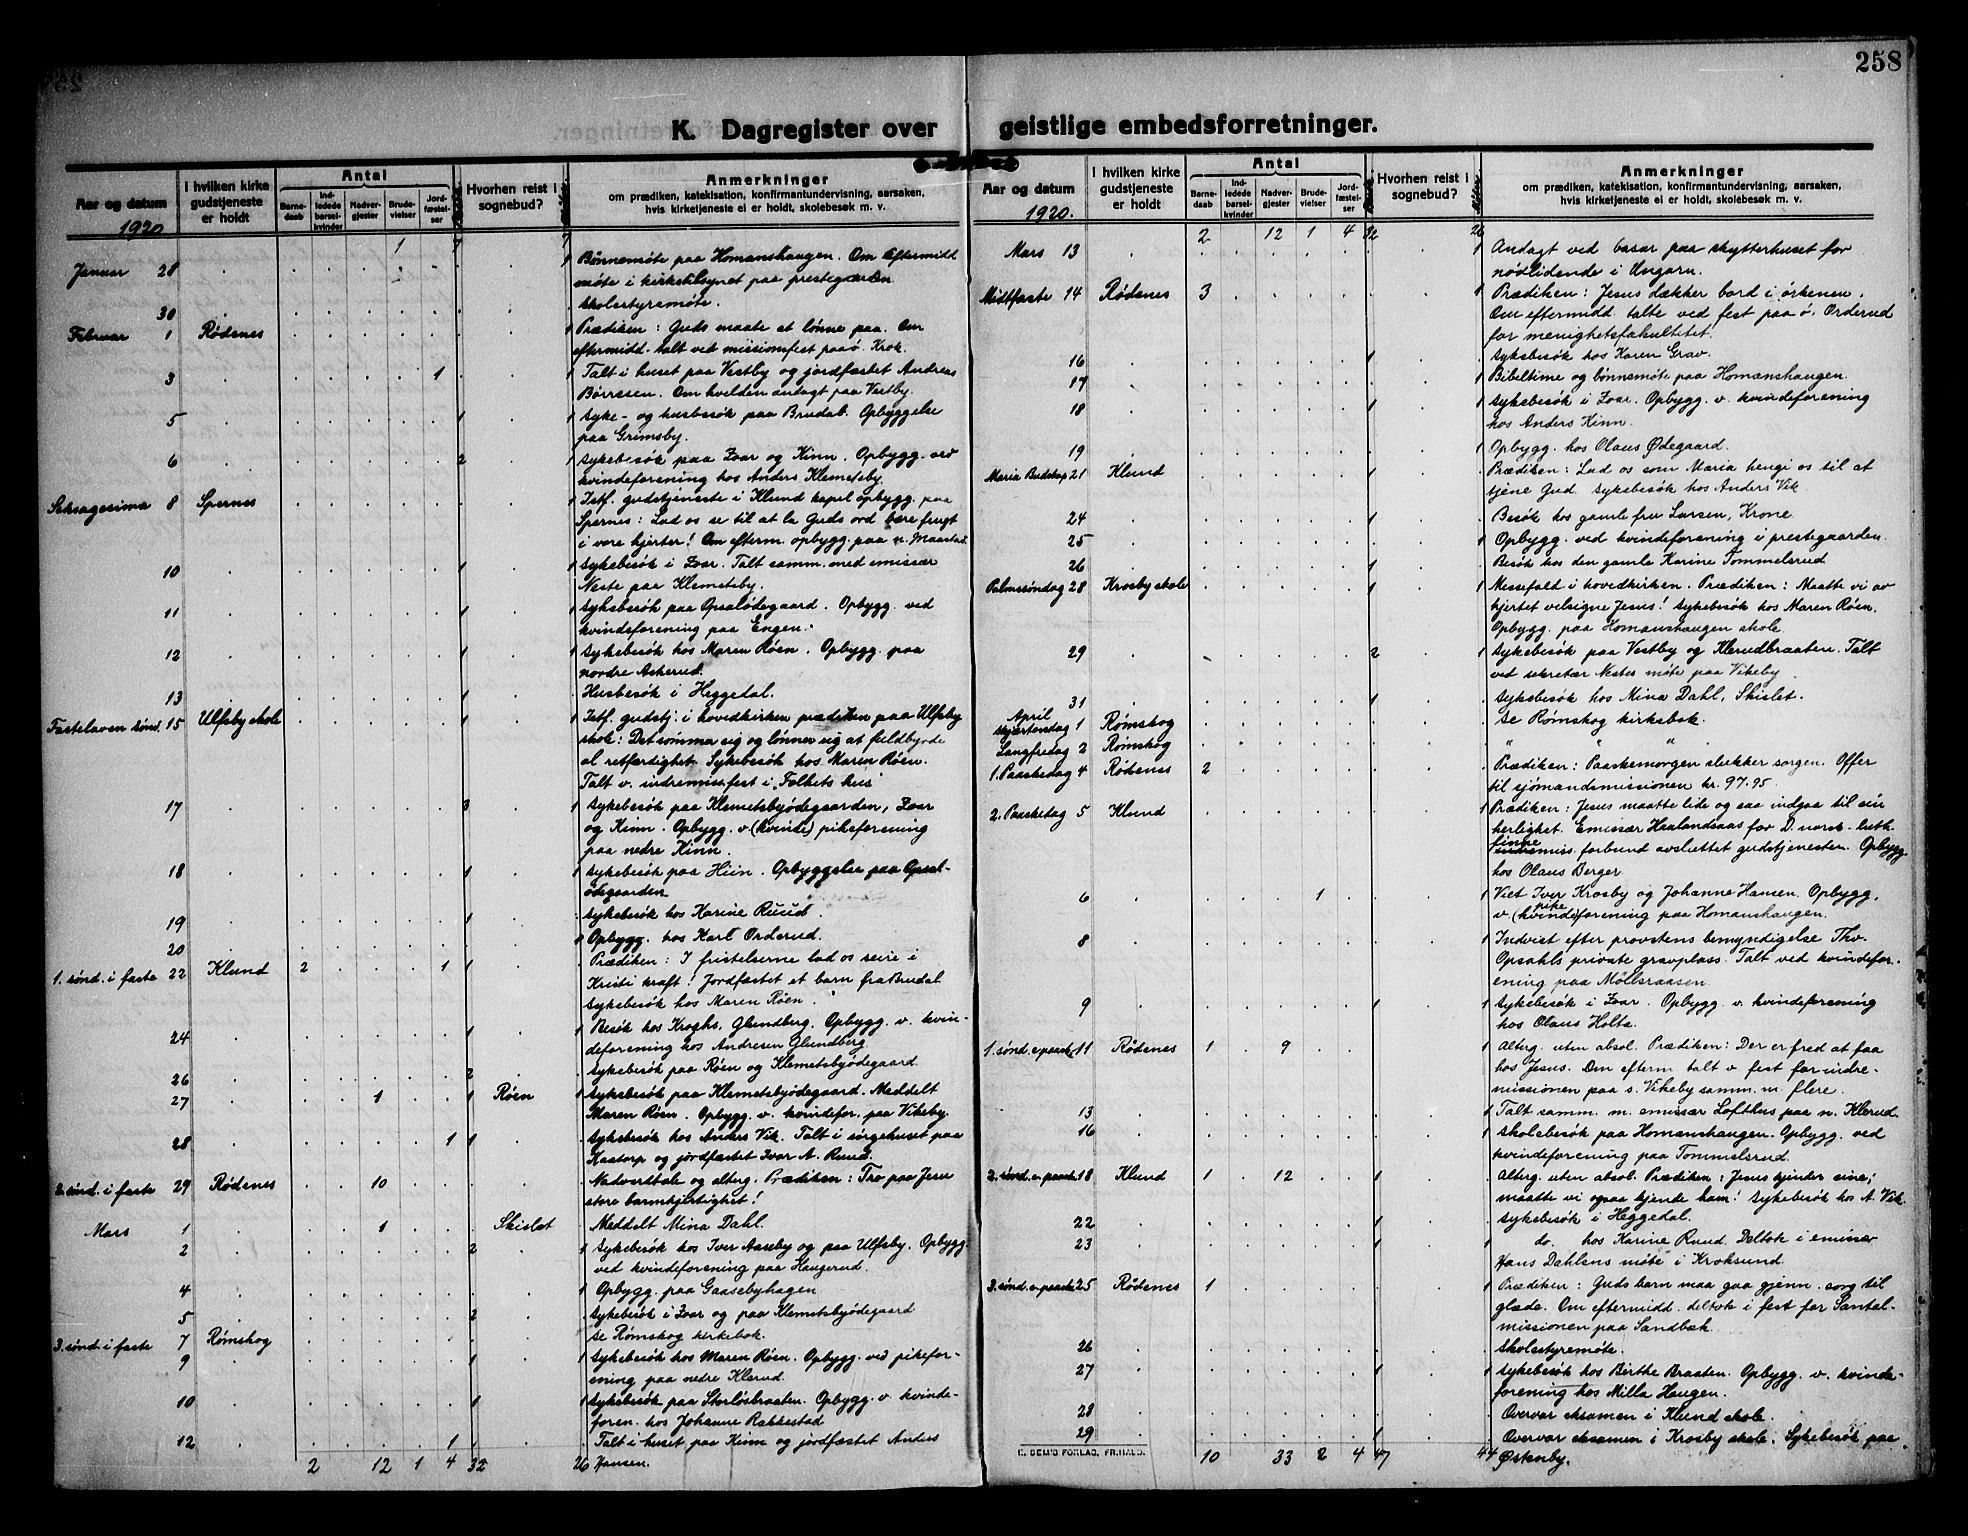 258
K. Dagregister over geistlige embedsforretninger.
Aar og datum
1920
I hvilken kirke
gudstjeneste
er holdt
Antal
Barne-
daab
Ind-
ledede
barsel-
kvinder
Nadver-
gjester
Brude-
vielser
Jord-
fæstel-
ser
Hvorhen reist i
sognebud?
Anmerkninger
om prædiken, katekisation, konfirmantundervisning, aarsaken,
hvis kirketjeneste ei er holdt, skolebesøk m. v.
1 7 7
Januar 28 1 Bønnemøte paa Homanshaugen. Om eftermidd
møte i kirketilsynet paa prestegaarden
30 Skolestyremøte.
Februar 1 Rødenes 1 Prædiken: Guds maate at lønne paa. Om
eftermidd. talt ved missionsfest paa ø. Krok.
3 1 1 Talt i huset paa Vestby og jordfæstet Andreas
Børresen. Om kvelden andagt paa Vestby.
5 1 1 Syke- og husbesøk paa Brudal. Opbyggelse
paa Grimsby.
6 2 1 Sykebesøk paa Zoar og Kinn. Opbygg. ved
kvindeforening hos Anders Klemetsby.
Seksagesima 8 Spernes 1 Istf. gudstjeneste i Klund kapel opbygg. paa
Spernes: Lad os se til at la Guds ord bære frugt
i vore hjerter! Om efterm. opbygg. paa n. Maastad.
10 1 1 Sykebesøk i Zoar. Talt samm. med emissær
Neste paa Klemetsby.
11 1 1 Sykebesøk paa Opsalødegaard. Opbygg. ved
kvindeforening paa Engen.
12 1 1 Sykebesøk hos Maren Røen. Opbygg. paa
nordre Askerud.
13 1 Husbesøk i Heggedal.
Fastelaven sønd. 15 Ulfsby skole 1 1 Istf. gudstj. i hovedkirken prædiken paa Ulfsby
skole: Det sømmer sig og lønner sig at fuldbyrde
al retfærdighet. Sykebesøk hos Maren Røen.
Talt v. indremissfest i "Folkets hus"
17 3 1 Sykebesøk paa Klemetsbyødegaarden, Zoar
og Kinn. Opbygg. v. (kvinde) pikeforening
paa nedre Kinn.
18 1 1 Sykebesøk paa Hiin. Opbyggelse paa Opsal-
ødegaarden.
19 1 Sykebesøk hos Karine Ruud.
20 1 Opbygg. hos Karl Orderud.
1. sønd. i faste 22 Klund 2 1 1 Prædiken: I fristelserne lad os seire i
Kristi kraft! Jordfæstet et barn fra Brudal
Sykebesøk hos Maren Røen.
24 1 1 Besøk hos Kroghs, Glundberg. Opbygg. v. kvin-
deforening hos Andresen Glundberg
26 2 Sykebesøk paa Røen og Klemetsbyødegaard.
27 1 1 Røen 1 Sykebesøk paa Klemetsbyødegaard. Meddelt
Maren Røen. Opbygg. v. kvindefor. paa Vikeby.
28 1 1 Sykebesøk hos Anders Vik. Talt i sørgehuset paa
Kaatorp og jordfæstet Ivar A. Ruud.
2. sønd. i faste 29 Rødenes 10 Nadvertale og alterg. Prædiken: Tro paa Jesu
store barmhjertighet!
Mars 1 1 Skislet Meddelt Mina Dahl.
2 2 1 Sykebesøk hos Iver Aaseby og paa Ulfsby. Opbygg.
ved kvindeforening paa Haugerud.
4 1 Opbygg. paa Gaasebyhagen
5 2 Sykebesøk i Zoar og paa Klemetsbyødegaard
3. sønd. i faste 7 Rømskog Se Rømskog kirkebok.
9 1 1 Sykebesøk hos Maren Røen. Opbygg. ved pikefor-
ening paa nedre Klerud.
10 1 1 Sykebesøk paa Storløsbraaten. Opbygg. v. kvinde-
foren. hos Johanne Rakkestad
12 1 1 Talt i huset paa Kinn og jordfæstet Anders
2 12 1 4 32 26 Hansen.
Aar og datum
1920.
I hvilken kirke
gudstjeneste
er holdt
Antal
Barne-
daab
Ind-
ledede
barsel-
kvinder
Nadver-
gjester
Brude-
vielser
Jord-
fæstel-
ser
Hvorhen reist i
sognebud?
Anmerkninger
om prædiken, katekisation, konfirmantundervisning, aarsaken,
hvis kirketjeneste ei er holdt, skolebesøk m. v.
2 12 1 4 32 26
Mars 13 1 Andagt ved basar paa skytterhuset for
nødlidende i Ungarn.
Midtfaste 14 Rødenes 3 1 Prædiken: Jesus dækker bord i ørkenen.
Om eftermidd. talte ved fest paa ø. Orderud
for menighetsfakultetet.
16 1 Sykebesøk hos Karen Grav.
17 1 Bibeltime og bønnemøte paa Homanshaugen.
18 1 1 Sykebesøk i Zoar. Opbygg. v. kvindeforening
hos Anders Kinn.
19 1 Opbygg. hos Olaus Ødegaard.
Maria Budskap 21 Klund 1 Prædiken: Lad os som Maria hengi os til at
tjene Gud. Sykebesøk hos Anders Vik.
24 1 Besøk hos gamle fru Larsen, Krone
25 1 Opbygg. ved kvindeforening i prestegaarden.
26 1 Besøk hos den gamle Karine Tommelsrud
Palmesøndag 28 Krosby skole 1 1 Messefald i hovedkirken. Prædiken: Maatte vi av
hjertet velsigne Jesus! Sykebesøk hos Maren Røen.
Opbygg. paa Homanshaugen skole.
29 2 1 Sykebesøk paa Vestby og Klerudbraaten. Talt
ved sekretær Nestes møte paa Vikeby.
31 1 Sykebesøk hos Mina Dahl, Skislet.
April
Skjærtorsdag 1 Rømskog Se Rømskog kirkebok.
Langfredag 2 Rømskog " " "
1. Paaskedag 4 Rødenes 2 Prædiken: Paaskemorgen slukker sorgen. Offer
til sjømandsmissionen kr. 97.95
2. Paaskedag 5 Klund 1 Prædiken: Jesus maatte lide og saa indgaa til sin
herlighet. Emissær Haalandsaas for D. norsk-luth.
finne
indremiss. forbund avsluttet gudstjenesten. Opbygg
hos Olaus Berger
6 1 1 Viet Iver Krosby og Johanne Hansen. Opbygg.
pike
v. (kvinde)forening paa Homanshaugen.
8 1 Indviet efter provstens bemyndigelse Thv.
Opsahls private gravplass. Talt ved kvindefor-
ening paa Møllsraasen.
9 1 1 Sykebesøk i Zoar. Opbygg. v. kvindeforening
hos Olaus Holta.
1. sønd. e. paaske 11 Rødenes 1 9 1 Alterg. uten absol. Prædiken: Der er fred at faa
hos Jesus. Om efterm talt v fest for indre-
missionen paa s. Vikeby samm. m. flere.
13 1 Talt samm. m. emissær Lofthus paa n. Klerud.
16 1 Skolebesøk paa Homanshaugen. Opbygg. ved
kvindeforening paa Tommelsrud.
2. sønd. e. paaske 18 Klund 1 12 1 Alterg. uten absol. Prædiken: Jesus kjender sine;
maatte vi ogsaa kjende ham! Sykebesøk hos A. Vik.
22 1 Sykebesøk i Heggedal.
23 1 do. hos Karine Ruud. Deltok i emissær
Hans Dahlens møte i Kroksund.
3. sønd. e. paaske 25 Rødenes 1 1 Prædiken: Guds barn maa gaa gjenn. sorg til
glæde. Om eftermidd. deltok i fest for Santal-
missionen paa Sandbæk.
26 Skolestyremøte.
27 1 1 Sykebesøk hos Birthe Braaten. Opbygg. v. kvinde-
forening hos Milla Haugen.
28 Overvar eksamen i Klund skole.
29 1 Overvar eksamen i Krosby skole. Sykebesøk paa
10 33 2 4 47 44 Østenby.
E. SEM'S FORLAG, FR.HALD.